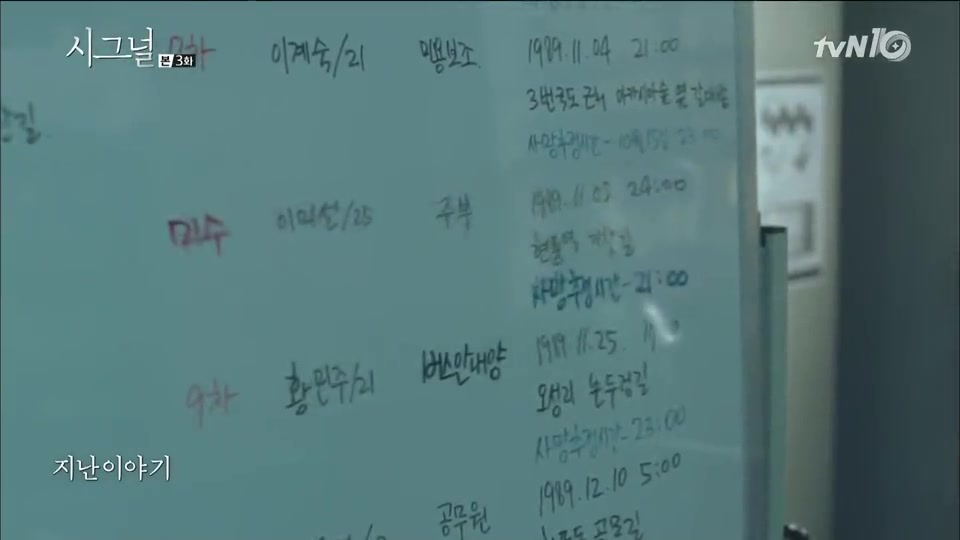 시그널 본 3화
tvN10
7차 이계숙/21 미용보조 1989.11.04 21:00
3번국도 근처 아카시아숲 옆
사망추정시간-10월15일 23:00
미수 이미선/25 주부 1989.11.05 24:00
현풍역
사망추정시간-21:00
9차 황민주/21 버스안내양 1989.11.25.
오성리 논두렁길
사망추정시간-23:00
공무원 1989.12.10 5:00
지난이야기